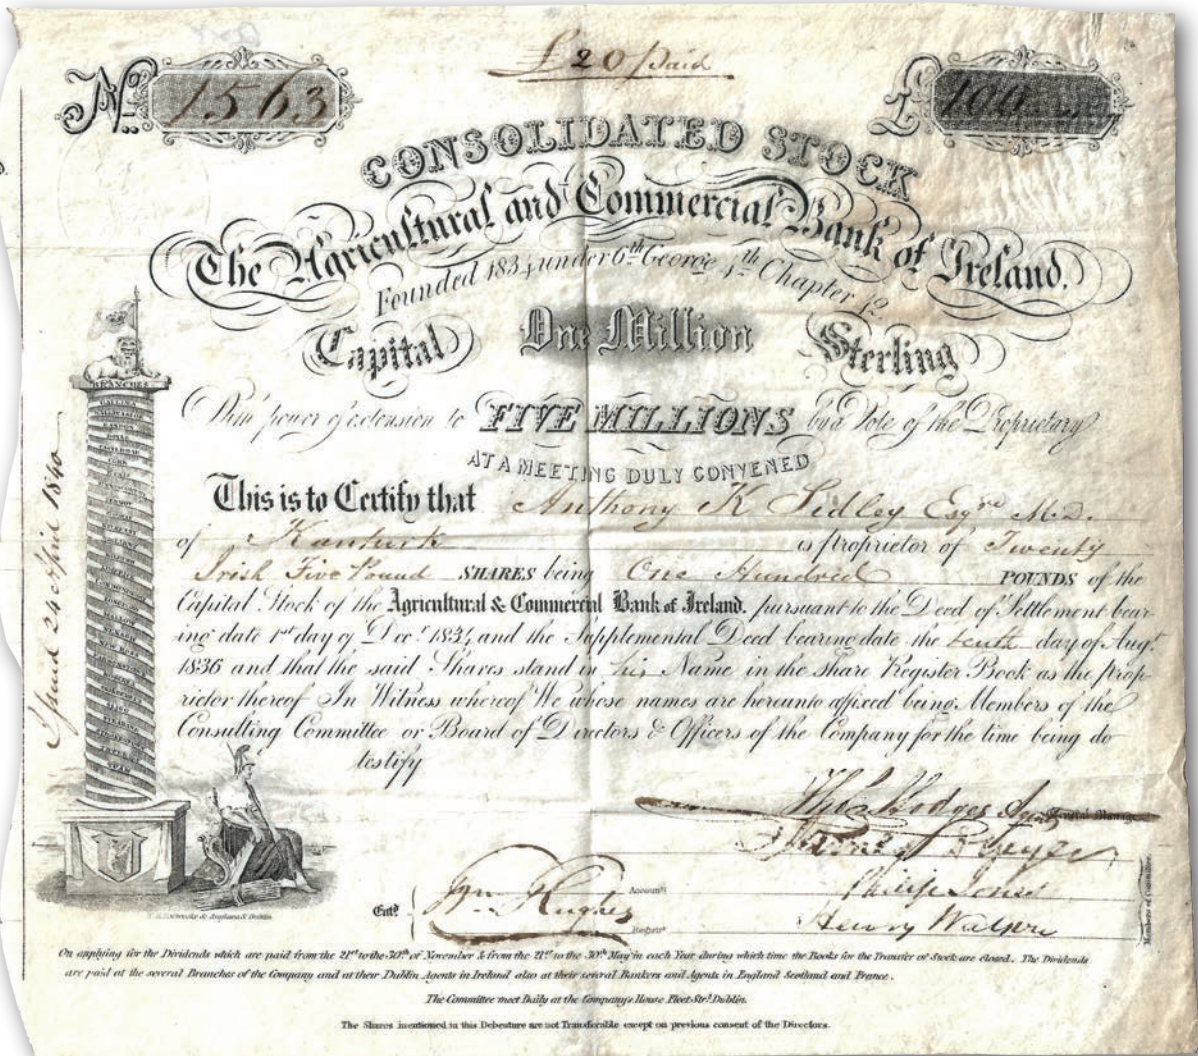 £20 paid
No. 1563
£ 100
CONSOLIDATED STOCK
The Agricultural and Commercial Bank of Ireland.
Founded 1834 under 6th George 4th Chapter 42
Capital One Million Sterling
With power of extension to FIVE MILLIONS by a Vote of the Proprietary
AT A MEETING DULY CONVENED
This is to Certify that Anthony K Sidley Esqre M.D.
of Kanturk is proprietor of Twenty
Irish Five Pound SHARES being One Hundred POUNDS of the
Capital Stock of the Agricultural & Commercial Bank of Ireland, pursuant to the Deed of Settlement bear-
ing date 1st day of Decr. 1834 and the Supplemental Deed bearing date the tenth day of Augt.
1836 and that the said Shares stand in his Name in the share Register Book as the prop-
rietor thereof In Witness whereof We whose names are hereunto affixed being Members of the
Consulting Committee or Board of Directors & Officers of the Company for the time being do
testify
24 April 1840
BRANCHES
BALLINA
BANDON
BOYLE
CORK
ENNIS
LONGFORD
MALLOW
NENAGH
NEW ROSS
SLIGO
STRABANE
TRALEE
TUAM
Thos Hodges Agent
Philip Jones
Henry Walker
Members of Committee
Accountt.
Entd. Wm Hughes
Registrar
On applying for the Dividends which are paid from the 21st to the 30th of November & from the 21st to the 30th May in each Year during which time the Books for the Transfer of Stock are closed. The Dividends
are paid at the several Branches of the Company and at their Dublin Agents in Ireland also at their several Bankers and Agents in England Scotland and France.
The Committee meet Daily at the Company's House Fleet Strt. Dublin.
The Shares mentioned in this Debenture are not Transferable except on previous consent of the Directors.